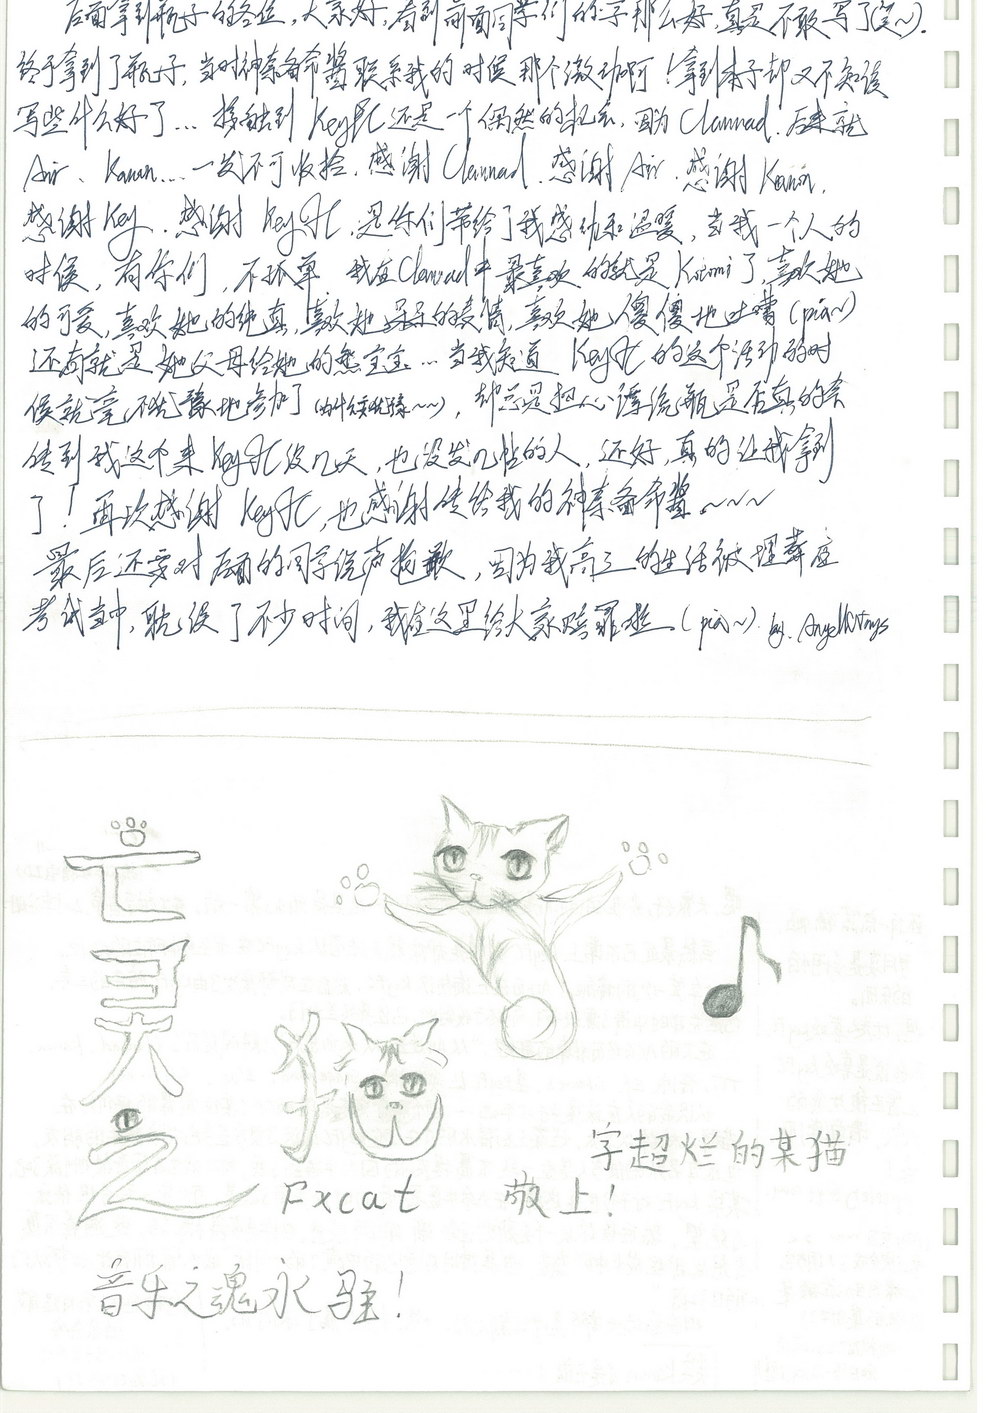 后面拿到瓶子的各位，大家好，看到前面同学们的字那么好，真是不敢写了(笑~).
终于拿到了瓶子，当时神奈备命酱联系我的时候那个激动啊！拿到本子却又不知该
写些什么好了... 接触到KeyFC还是一个偶然的机会，因为Clannad，后来就
Air、Kanon...一发不可收拾，感谢Clannad，感谢Air，感谢Kanon，
感谢Key，感谢KeyFC，是你们带给了我感动和温暖，当我一个人的
时候，有你们，不孤单。我在Clannad中最喜欢的就是Kotomi了，喜欢她
的可爱，喜欢她的纯真，喜欢她呆呆的表情，喜欢她傻傻地吐嘈(pia~)
还有就是她父母给她的熊宝宝...当我知道KeyFC的这个活动的时
候就毫不犹豫地参加了，却总是担心漂流瓶是否真的会
传到我这个来KeyFC没几天，也没发几帖的人，还好，真的让我拿到
了！再次感谢KeyFC，也感谢传给我的神奈备命酱~~~
最后还要对后面的同学说声抱歉，因为我高三的生活被埋葬在
考试当中，耽误了不少时间，我在这里给大家赔罪啦。(pia~) by.
亡灵之猫
Fxcat
字超烂的某猫
敬上！
音乐之魂永驻！